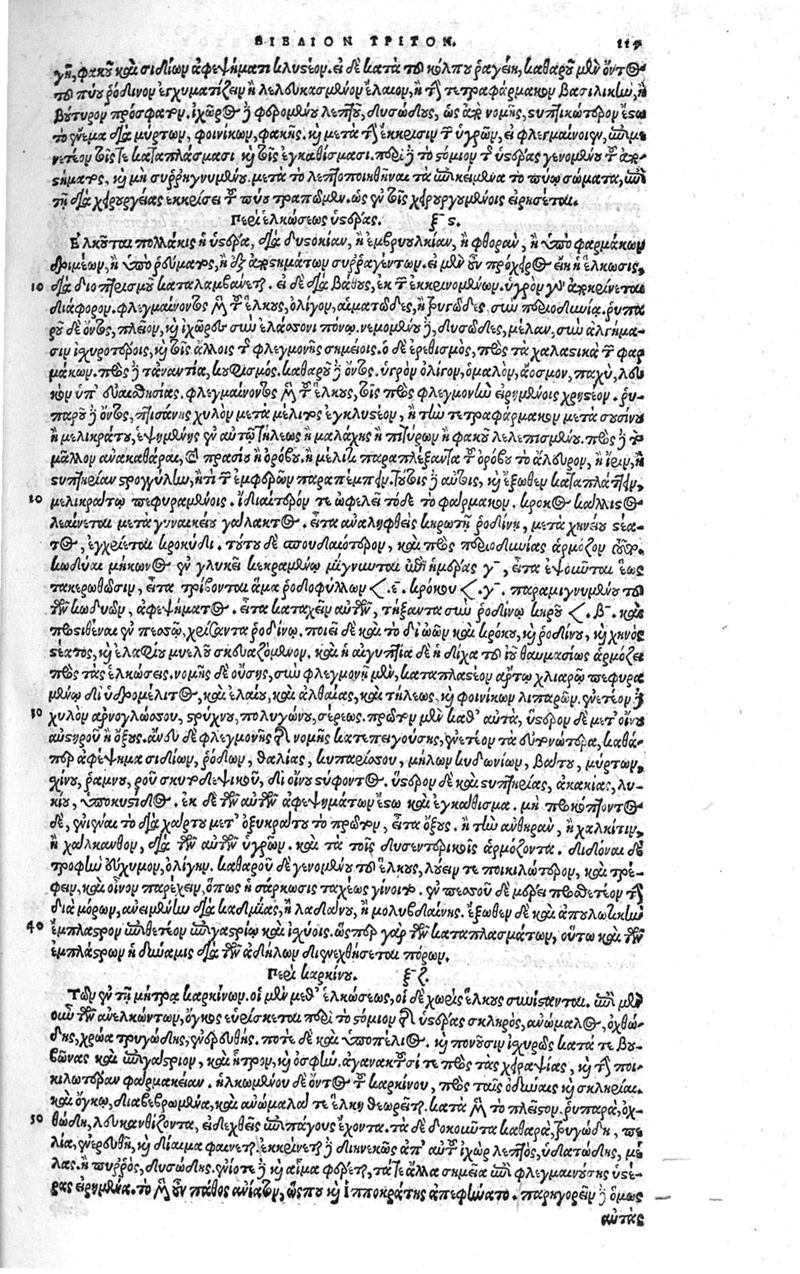 ΒΙΒΛΙΟΝ ΤΡΙΤΟΝ.
γῆ, φακοῦ καὶ σιδίων ἀφεψήματι κλυστέον. εἰ δὲ κατὰ τοῦ κόλπου ῥαγείη, καθαροῦ μὲν ὄντος
τοῦ πύου ῥόδινον ἐγχυματίζειν ἢ λελουκασμένον ἔλαιον, ἢ τῇ τετραφάρμακον βασιλικὴν, ἢ
βούτυρον πρόσφατον. ἰχῶρος δὲ φερομένου λεπτοῦ, δυσώδους, ὡς ἀπὸ νομῆς, στυπτικώτερον ἔστω
τὸ ἔνεμα διὰ μύρτων, φοινίκων, φακῆς. καὶ μετὰ τὴν ἔκκρισιν τῶν ὑγρῶν, εἰ φλεγμαίνοιεν, ἐπιμε-
νετέον τοῖς τε καταπλάσμασι καὶ τοῖς ἐγκαθίσμασι. περὶ δὲ τὸ στόμιον τῆς ὑστέρας γενομένου τοῦ ἀπο-
στήματος, καὶ μὴ συρρηγνυμένου. μετὰ τὸ λεπτοποιηθῆναι τὰ ἐπικείμενα τῷ πύῳ σώματα, ἐπὶ
τῇ διὰ χειρουργείας ἐκκρίσει τοῦ πύου τραπῶμεν. ὡς ἐν τοῖς χειρουργουμένοις εἰρήσεται.
Περὶ ἑλκώσεως ὑστέρας. ξ ς.
Ἑλκοῦται πολλάκις ἡ ὑστέρα, διὰ δυστοκίαν, ἢ ἐμβρυουλκίαν, ἢ φθορὰν, ἢ ὑπὸ φαρμάκων
δριμέων, ἢ ὑπὸ ῥεύματος, ἢ ἐξ ἀποστημάτων συρραγέντων. εἰ μὲν οὖν πρόχειρος εἴη ἡ ἕλκωσις,
10 διὰ διοπτρισμοῦ καταλαμβάνεται. εἰ δὲ διὰ βάθους, ἐκ τῶν ἐκκρινομένων. ὑγρὸν γὰρ ἀποκρίνεται
διάφορον. φλεγμαίνοντος μὲν τοῦ ἕλκους, ὀλίγον, αἱματῶδες, ἢ τρυγῶδες σὺν περιωδυνίᾳ. ῥυπα-
ροῦ δὲ ὄντος, πλεῖον, καὶ ἰχῶρον σὺν ἐλάσσονι πόνῳ. νεμομένου δὲ, δυσῶδες, μέλαν, σὺν ἀλγήμα-
σιν ἰσχυροτέροις, καὶ τοῖς ἄλλοις τῆς φλεγμονῆς σημείοις. ὁ δὲ ἐρεθισμὸς, πρὸς τὰ χαλαστικὰ τῶν φαρ-
μάκων. πρὸς δὲ τἀναντία, κουφισμός. καθαροῦ δὲ ὄντος. ὑγρὸν ὀλίγον, ὁμαλὸν, ἄοσμον, παχὺ, λευ-
κὸν ὑπ' εὐαισθησίας. φλεγμαίνοντος μὲν τοῦ ἕλκους, τοῖς πρὸς φλεγμονὴν εἰρημένοις χρηστέον. ῥυ-
παροῦ δὲ ὄντος, πτισάνης χυλὸν μετὰ μέλιτος ἐγκλυστέον, ἢ τὴν τετραφάρμακον μετὰ σουσίνου
ἢ μελικράτου, ἑψημένης ἐν αὐτῷ τήλεως ἢ μαλάχης ἢ πιτύρων ἢ φακοῦ λελεπισμένου. πρὸς δὲ τὸ
μᾶλλον ἀνακαθᾶραι, καὶ πρασίου ἢ ὀρόβου. ἢ μέλιτι παραπλέξαντα τοῦ ὀρόβου τὸ ἄλευρον, ἢ ἶριν, ἢ
στυπτηρίαν στρογγύλην, ἤ τι τῶν ἐμφερῶν παραπέμπειν. τούτοις δὲ αὖθις, καὶ ἔξωθεν καταπλάττειν,
20 μελικράτῳ πεφυραμένοις. ἰδιαίτερόν τε ὠφελεῖ τόδε τὸ φάρμακον. κρόκος κάλλιστος
λεαίνεται μετὰ γυναικείου γάλακτος. εἶτα ἀναληφθεὶς κηρωτῇ ῥοδίνῃ, μετὰ χηνείου στέα-
τος, ἐγχρίεται κροκύδι. τούτου δὲ σπουδαιότερον, καὶ πρὸς περιωδυνίας ἁρμόζον εὑρ.
κωδύαι μήκωνος ἐν γλυκεῖ κεκραμένῳ μίγνυνται ἐπὶ ἡμέρας γ, εἶτα ἕψονται ἕως
τακερωθῶσιν, εἶτα τρίβονται ἅμα ῥοδοφύλλων <. ε. κρόκου <. γ. παραμιγνυμένου τοῦ
τῶν κωδυῶν, ἀφεψήματος. εἶτα καταχεῖν αὐτῶν, τήξαντα σὺν ῥοδίνῳ κηροῦ <. β. καὶ
προστιθέναι ἐν πεσσῷ, χρίζοντα ῥοδίνῳ. ποιεῖ δὲ καὶ τὸ δι' ὠῶν καὶ κρόκου, καὶ ῥοδίνου, καὶ χηνὸς
στέατος, καὶ ἐλαφίου μυελοῦ σκευαζόμενον. καὶ ἡ αἰγυπτία δὲ ἡ δίχα τοῦ ἰοῦ θαυμασίως ἁρμόζει
πρὸς τὰς ἑλκώσεις. νομῆς δὲ οὔσης, σὺν φλεγμονῇ μὲν, καταπλαστέον ἄρτῳ χλιαρῷ πεφυρα-
μένῳ δι' ὑδρομέλιτος, καὶ ἐλαίου, καὶ ἀλθαίας, καὶ τήλεως, καὶ φοινίκων λιπαρῶν. ἐνετέον δὲ
30 χυλὸν ἀρνογλώσσου, στρύχνου, πολυγώνου, σέρεως. πρῶτον μὲν καθ' αὑτὰ, ὕστερον δὲ μετ' οἴνου
αὐστηροῦ ἢ ὄξους. ἄνευ δὲ φλεγμονῆς τῆς νομῆς κατεπειγούσης, ἐνετέον τὰ εὐτονώτερα, καθά-
περ ἀφέψημα σιδίων, ῥόδων, θαλίας, κυπαρίσσου, μήλων κυδωνίων, βάτου, μύρτων,
σχίνου, ῥάμνου, ῥοῦ σκυτοδεψικοῦ, δι' οἴνου στύφοντος. ὕστερον δὲ καὶ στυπτηρίας, ἀκακίας, λυ-
κίου, ὑποκυστίδος. ἐκ δὲ τῶν αὐτῶν ἀφεψημάτων ἔστω καὶ ἐγκάθισμα. μὴ προκόπτοντος
δὲ, ἐνιέναι τὸ διὰ χάρτου μετ' ὀξυκράτου τὸ πρῶτον, εἶτα ὄξους. ἢ τὴν ἀνθηρὰν, ἢ χαλκῖτιν,
ἢ χάλκανθον, διὰ τῶν αὐτῶν ὑγρῶν. καὶ τὰ τοῖς δυσεντερικοῖς ἁρμόζοντα. διδόναι δὲ
τροφὴν εὔχυμον, ὀλίγην. καθαροῦ δὲ γενομένου τοῦ ἕλκους, λούειν τε ποικιλώτερον, καὶ τρέ-
φειν, καὶ οἶνον παρέχειν, ὅπως ἡ σάρκωσις ταχέως γίνοιτο. ἐν πεσσοῦ δὲ μέρει προσθετέον τῇ
διὰ μόρων, ἀνειμένην διὰ καδμίας, ἢ λαδάνου, ἢ μολυβδαίνης. ἔξωθεν δὲ καὶ ἀπουλωτικὴν
40 ἔμπλαστρον ἐπιθετέον ἐπιγαστρίῳ καὶ ἰσχύοις. ὥσπερ γὰρ τῶν καταπλασμάτων, οὕτω καὶ τῶν
ἐμπλάστρων ἡ δύναμις διὰ τῶν ἀδήλων διενεχθήσεται πόρων.
Περὶ καρκίνου. ξ ζ.
Τῶν ἐν τῇ μήτρᾳ καρκίνων. οἱ μὲν μεθ' ἑλκώσεως, οἱ δὲ χωρὶς ἕλκους συνίστανται. ἐπὶ μὲν
οὖν τῶν ἀνελκώντων, ὄγκος εὑρίσκεται περὶ τὸ στόμιον τῆς ὑστέρας σκληρὸς, ἀνώμαλος, ὀχθώ-
δης, χρόᾳ τρυγώδης, ἐνερευθής. ποτὲ δὲ καὶ ὑποπέλιος. καὶ πονοῦσιν ἰσχυρῶς κατά τε βου-
βῶνας καὶ ἐπιγάστριον, καὶ ἦτρον, καὶ ὀσφύν. ἀγανακτοῦσί τε πρὸς τὰς χειραψίας, καὶ τὴν ποι-
κιλωτέραν φαρμακείαν. ἡλκωμένου δὲ ὄντος τοῦ καρκίνου, πρὸς ταῖς ὀδύναις καὶ σκληρίαι.
καὶ ὄγκῳ, διαβεβρωμένα, καὶ ἀνώμαλά τε ἕλκη θεωρεῖται. κατὰ μὲν τὸ πλεῖστον. ῥυπαρὰ, ὀχ-
50 θώδη, λευκανθίζοντα, εἰσδεχθεῖς ἐπὶ πάγους ἔχοντα. τὰ δὲ δοκοῦντα καθαρὰ, τρυγώδη, πε-
λία, ἐνερευθῆ, καὶ δίαιμα φαίνεται. ἐκκρίνεται δὲ διηνεκῶς ἀπ' αὐτοῦ ἰχὼρ λεπτὸς, ὑδατώδης, μέ-
λας. ἢ πυρρὸς, δυσώδης. ἐνίοτε δὲ καὶ αἷμα φέρεται, τά τε ἄλλα σημεῖα ἐπὶ φλεγμαινούσης ὑστέ-
ρας εἰρημένα. τὸ μὲν οὖν πάθος ἀνίατον, ὥς που καὶ Ἱπποκράτης ἀπεφήνατο. παρηγορεῖν δὲ ὅμως
αὐτὰς